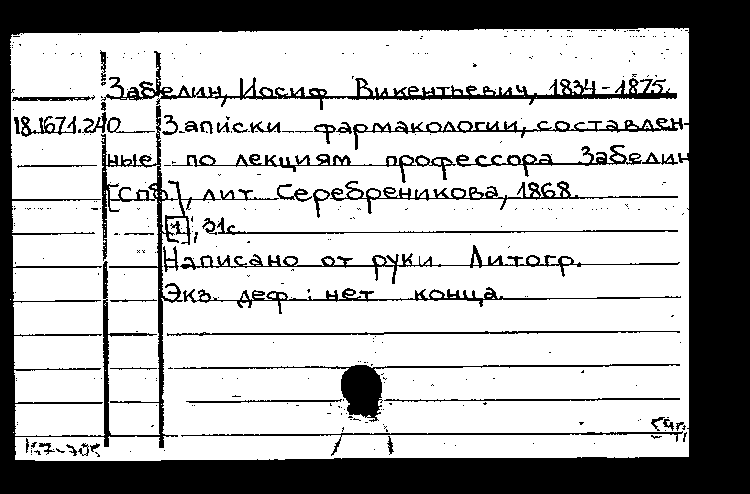 Забелин, Иосиф Викентьевич, 1834-1875.
18.167.1.240 Записки фармакологии, составлен-
ные по лекциям профессора Забелин
[СПб], лит. Серебреникова, 1868.
[1], 31с.
Написано от руки. Литогр.
Экз. деф.: нет конца.
167-705